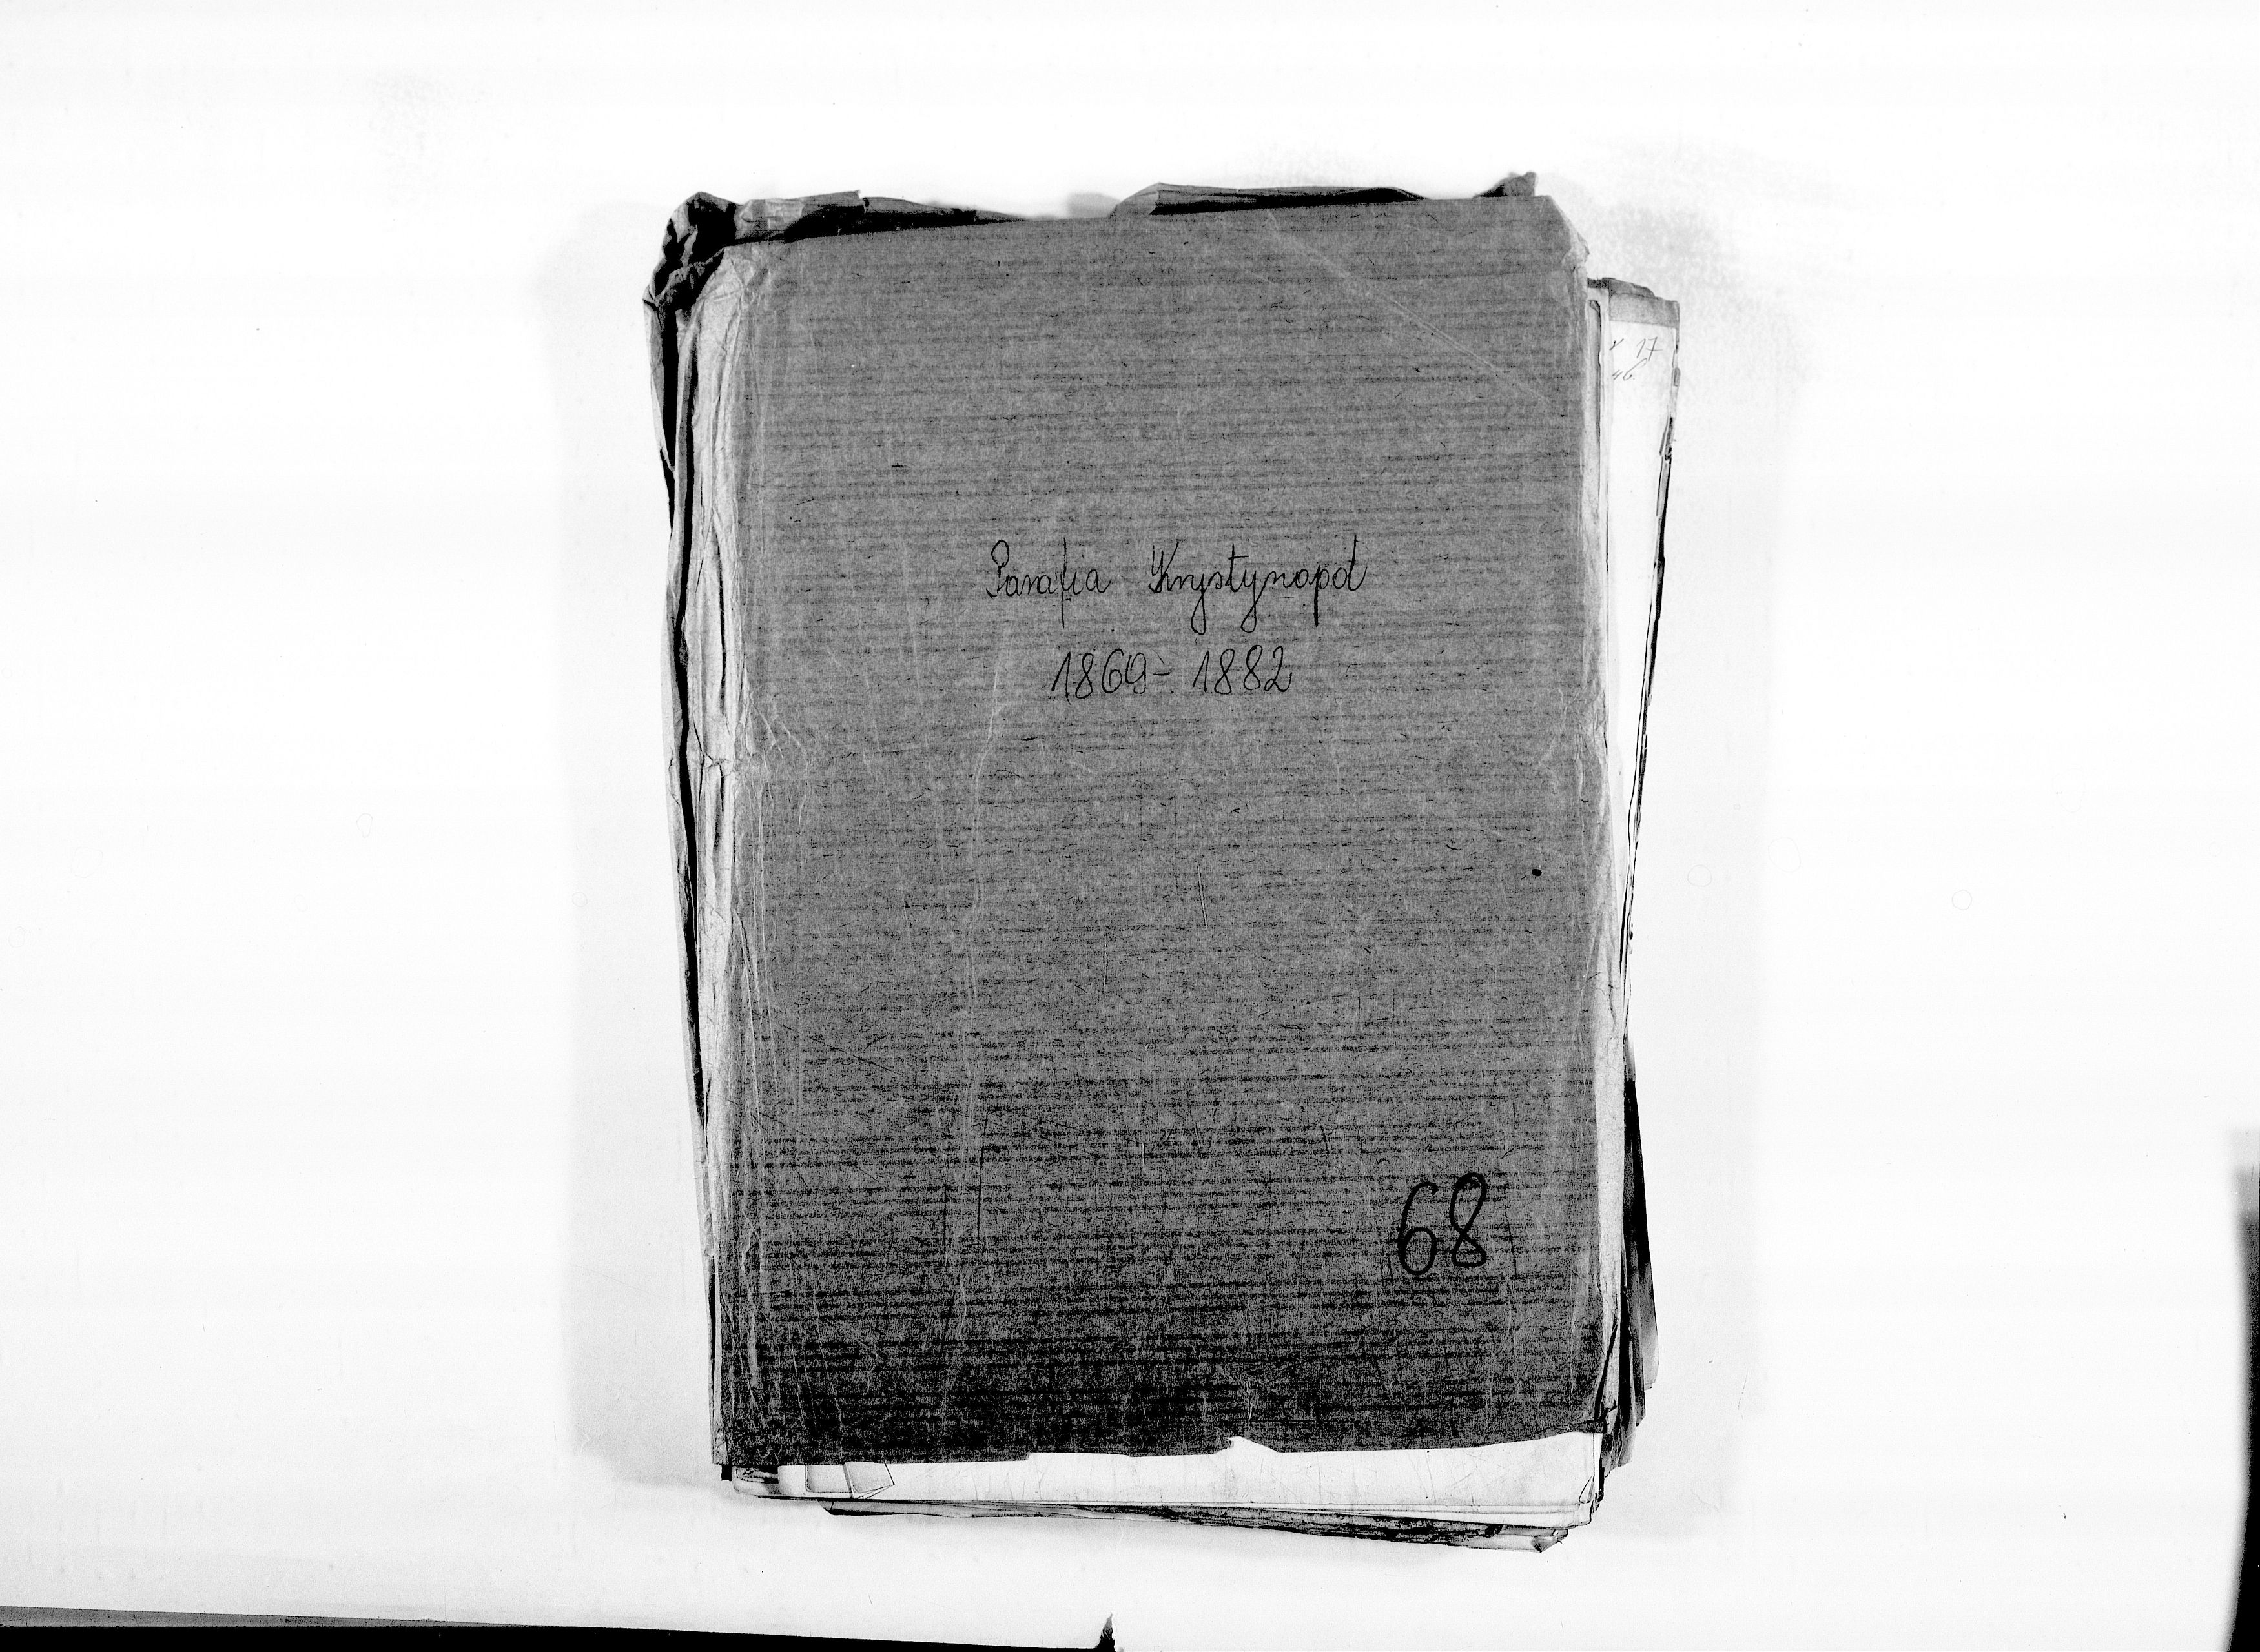 Parafia Krystynopol
1869-1882
68
17
46